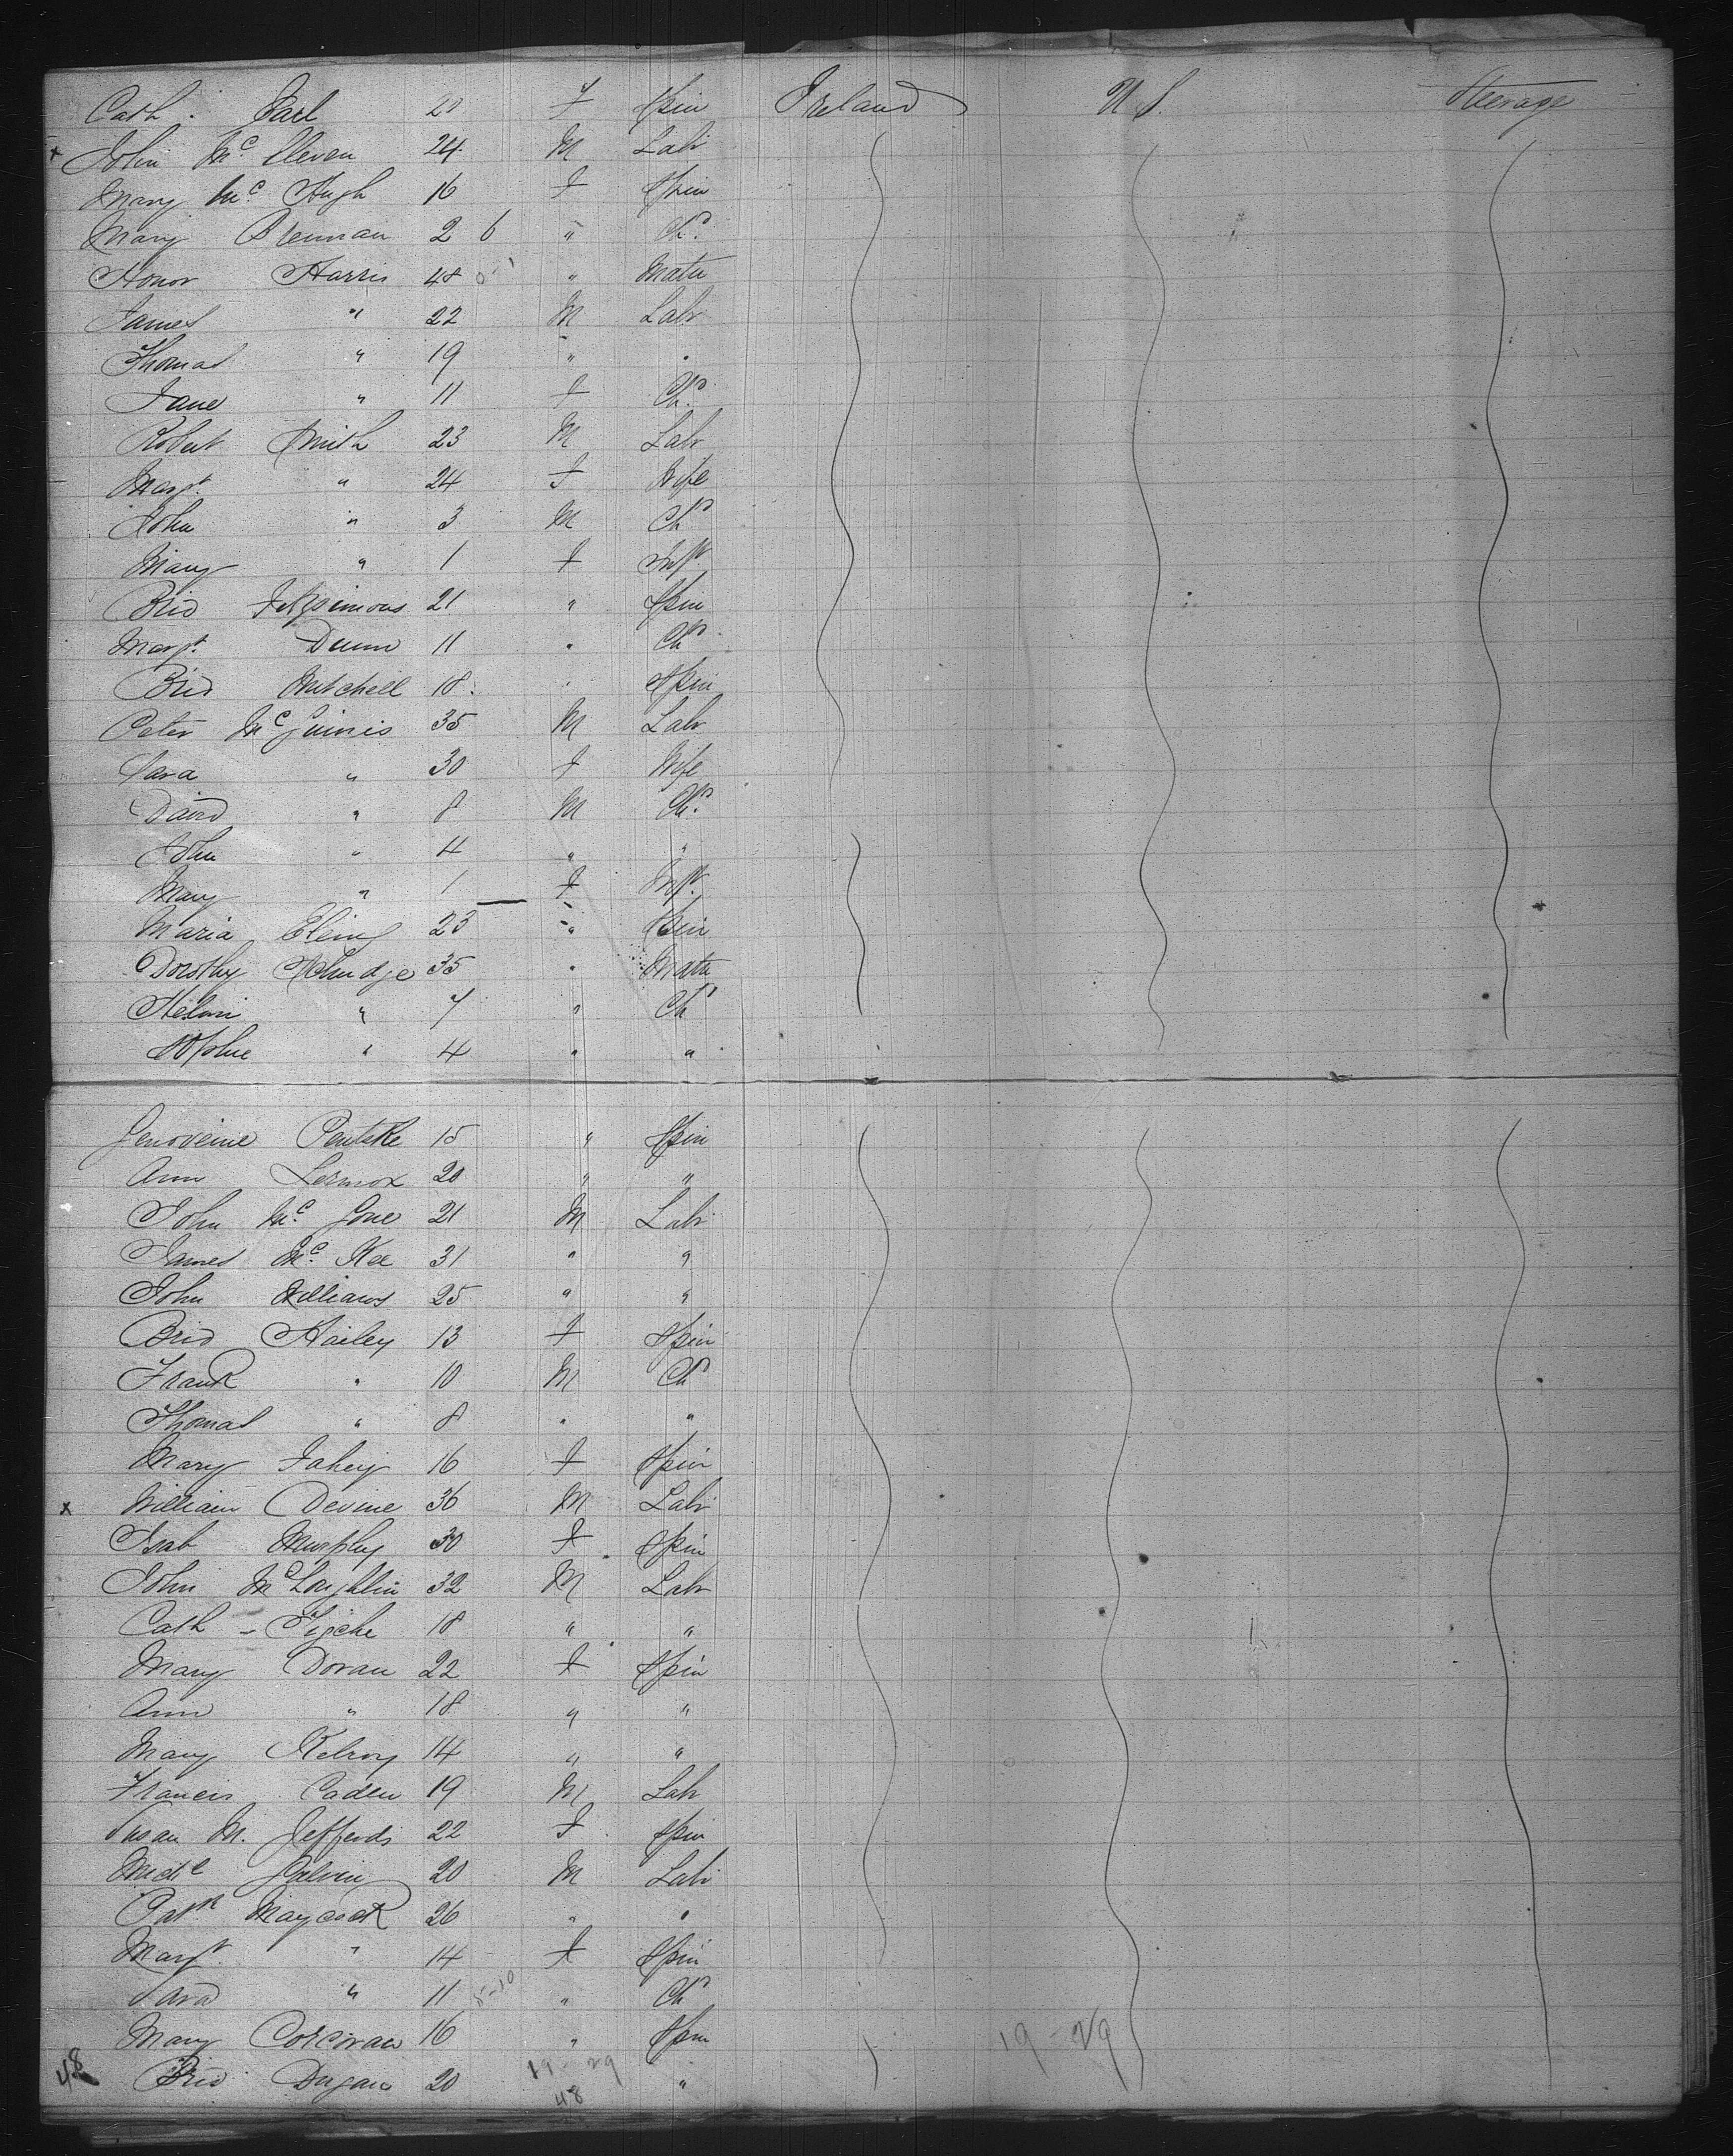 Cath. Carl 20 F Spin Ireland U.S. Steerage
x John Mc Cleven 24 M Labr
Mary Mc Hugh 16 F Spin
Mary Brennan 2 6 " Chd
Honor Harris 48 " Matn
James " 22 M Labr
Thomas " 19 " "
Jane " 11 F Chd
Robert Smith 23 M Labr
Margt " 24 F Wife
John " 3 M Chd
Mary " 1 F Inft
Brid Fitzsimons 21 " Spin
Margt Dunn 11 " Chd
Brid Mitchell 18 " Spin
Peter McGuinis 35 M Labr
Sara " 30 F Wife
David " 8 M Chd
John " 4 " "
Mary " 1 F Inft
Maria Eleing 23 " Spin
Dorothy Schudge 35 " Matn
Helwi " 7 " Chd
Sophie " 4 " "
Genoveine Pentske 15 " Spin
Ann Lermox 20 " "
John Mc Gone 21 M Labr
James Mc Kee 31 " "
John Williams 25 " "
Brid Hailey 13 F Spin
Frank " 10 M Chd
Thomas " 8 " "
Mary Fahey 16 F Spin
x William Devine 36 M Labr
Isab Murphy 30 F Spin
John McLoughlin 32 M Labr
Cath Tighe 18 " "
Mary Doran 22 F Spin
Ann " 18 " "
Mary Kelroy 14 " "
Francis Caden 19 M Labr
Susan M. Jefferds 22 F Spin
Michl Galvin 20 M Labr
Patk Maycock 26 " "
Margt " 14 F Spin
Sara " 11 " Chd
Mary Corcoran 16 " Spin 19-29
48 Brid Dugan 20 19-29 "
48